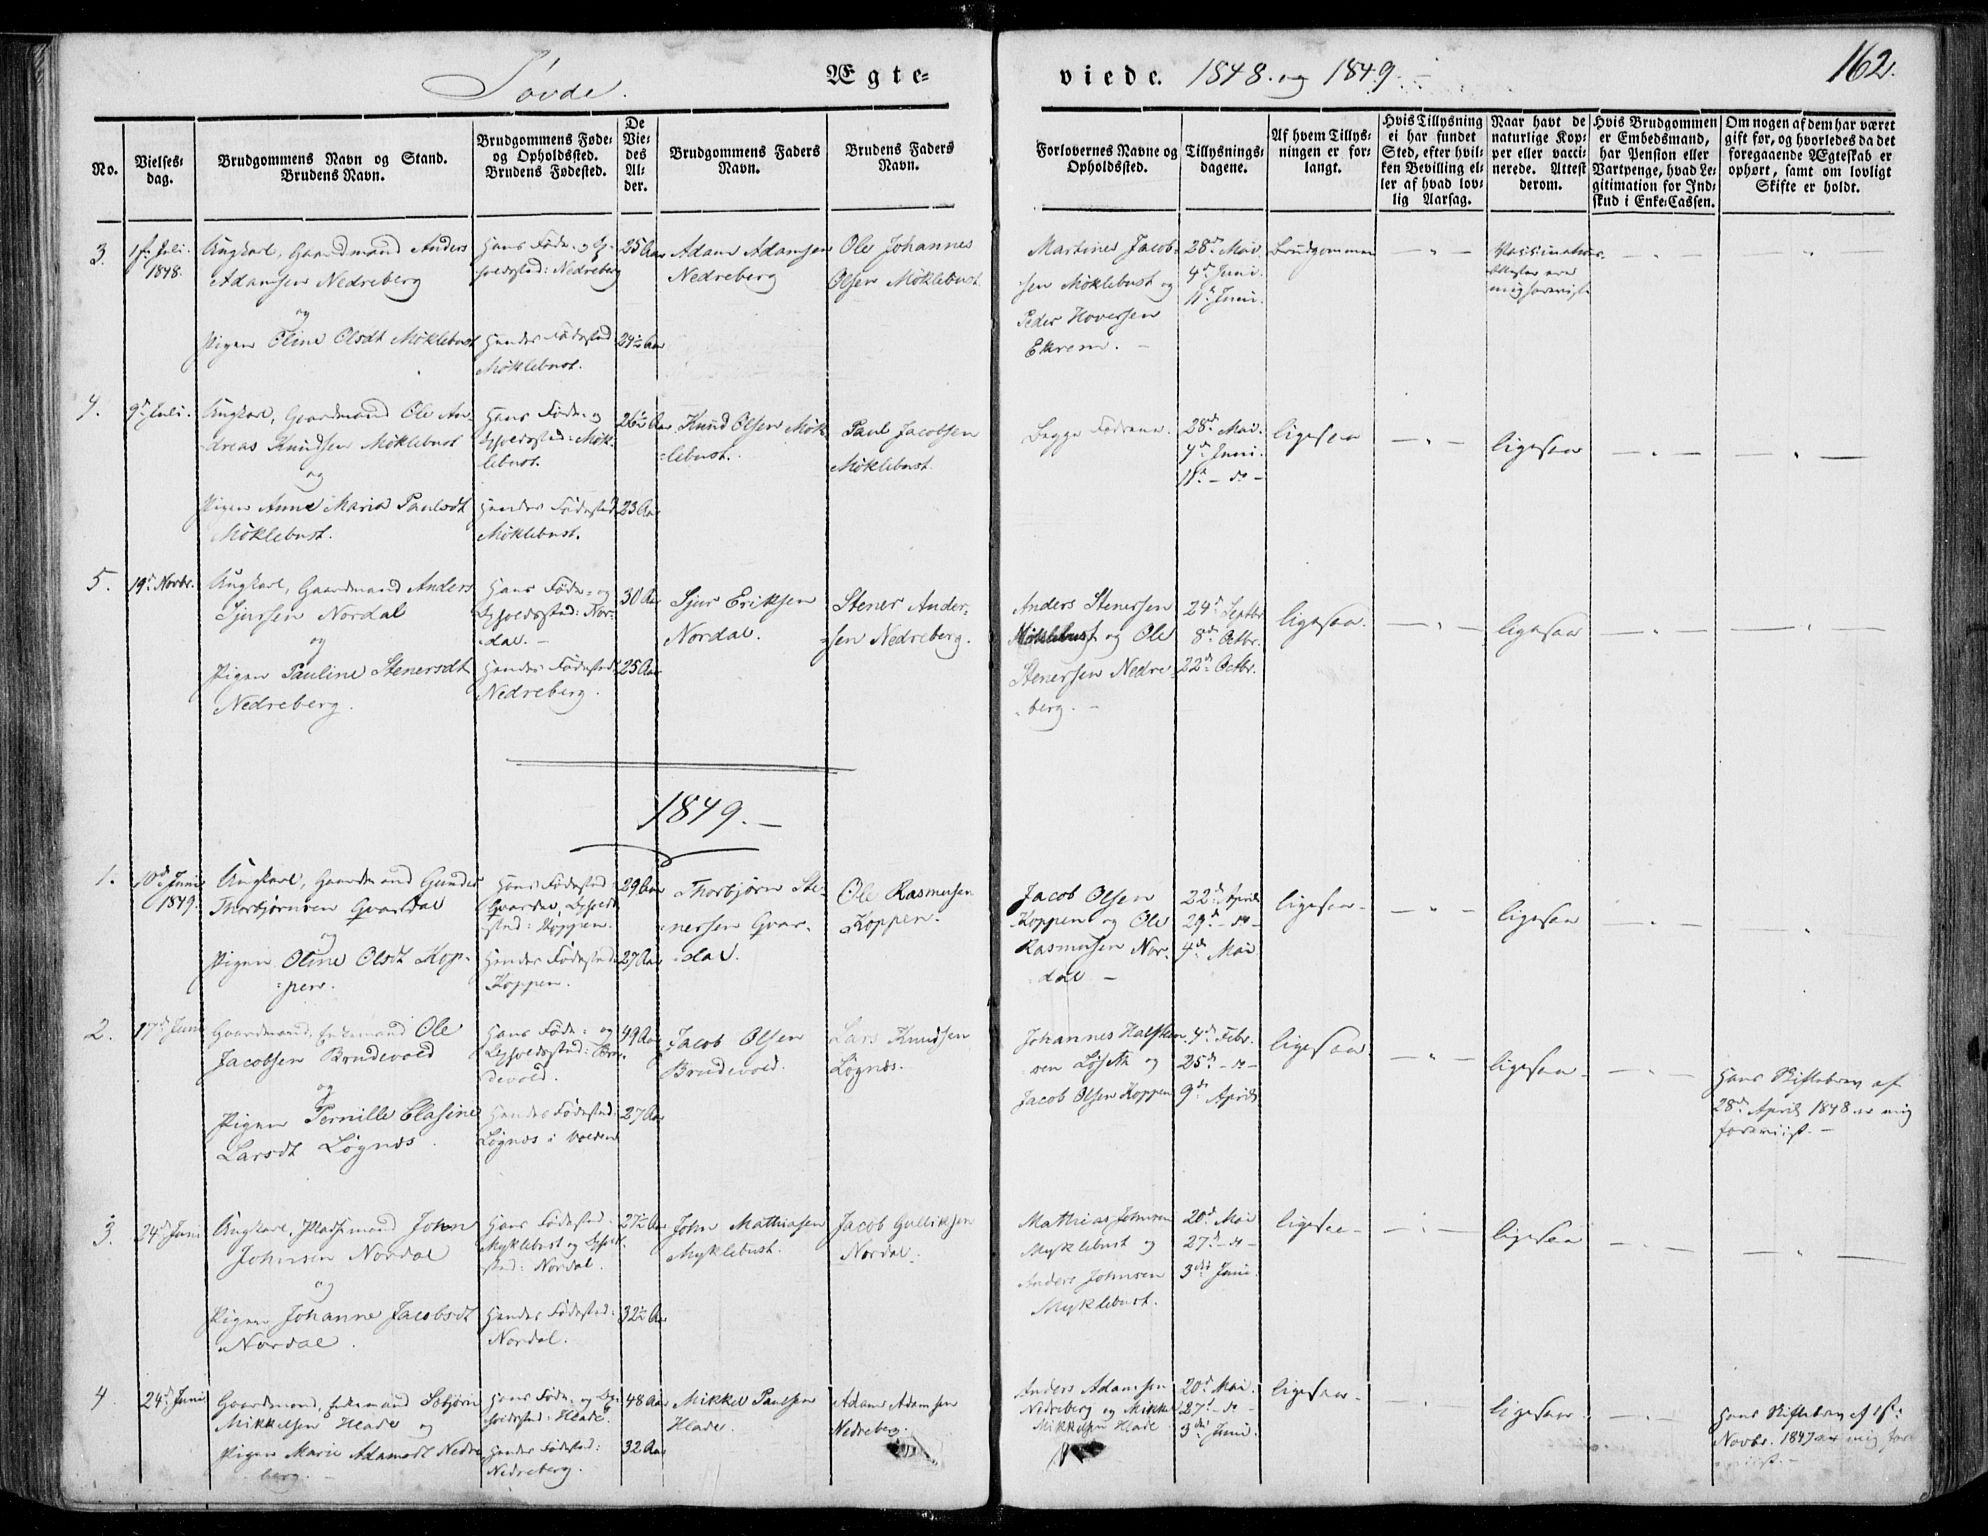 Søvde.
Ægte-
viede. 1848. og 1849.
162.
No.
Vielses-
dag.
Brudgommens Navn og Stand.
Brudens Navn.
Brudgommens Føde-
og Opholdssted.
Brudens Fødested.
De
Vie-
des
Al-
der.
Brudgommens Faders
Navn.
Brudens Faders
Navn.
Forlovernes Navne og
Opholdssted.
Tillysnings-
dagene.
Af hvem Tillys-
ningen er for-
langt.
Hvis Tillysning
ei har fundet
Sted, efter hvil-
ken Bevilling el-
ler af hvad lov-
lig Aarsag.
Naar havt de
naturlige Kop-
per eller vacci-
nerede. Attest
derom.
Hvis Brudgommen
er Embedsmand,
har Pension eller
Vartpenge, hvad Le-
gitimation for Ind-
skud i Enke-Cassen.
Om nogen af dem har været
gift før, og hvorledes da det
foregaaende Ægteskab er
ophørt, samt om lovligt
Skifte er holdt.
3.
1ste Juli.
1848.
Ungkarl, Gaardmand Anders
Adamsen Nedreberg
og
Pigen Oline Olsdt Møklebust
Hans Føde- og
: Nedreberg
Hendes Fødested
Møklebust.
25 Aar
24½ Aar
Adam Adamsen
Nedreberg
Ole Johannes
Olsen Møklebust
Martines Jacob-
sen Møklebust og
Peder Hoversen
Ekrem. -
28de Mai.
4de Juni
11te Juni.
Brudgommen
Vaccinations-
4.
9de Juli.
Ungkarl, Gaardmand Ole An-
dreas Knudsen Møklebust
og
Pigen Anne Maria Paulsdt
Møklebust.
Hans Føde- og
Opholdssted: Møk-
lebust.
Hendes Fødested
Møklebust.
26½ Aar
23 Aar
Knud Olsen Møk-
lebust.
Paul Jacobsen
Møklebust.
Begge Fædrene.
28de Mai.
4de Juni.
11te - do -
ligesaa
ligesaa
5.
19de Novbr.
Ungkarl, Gaardmand Anders
Sjursen Nordal
og
Pigen Pauline Stenersdt
Nedreberg.
Hans Føde- og
Opholdssted: Nor-
dal. -
Hendes Fødested
Nedreberg.
30 Aar
25 Aar
Sjur Eriksen
Nordal.
Stener Ander-
sen Nedreberg.
Anders Stenersen
Møklebust og Ole
Stenersen Nedre-
berg. -
24de Septbr
8de Octbr.
22de Octbr.
ligesaa.
ligesaa
1849. -
1.
10de Juni
1849.
Ungkarl, Gaardmand Gunder
Thorbjørnsen Qvardal
og
Pigen Oline Olsdt Kop-
pen.
Hans Fødested:
Qvardal, Opholds-
sted: Koppen.
Hendes Fødested:
Koppen.
29 Aar
27 Aar
Thorbjørn Ste-
nersen Qvar-
dal.
Ole Rasmusen
Koppen.
Jacob Olsen
Koppen og Ole
Rasmusen Nor-
dal -
22de April
29de - do -
4de Mai
ligesaa
ligesaa
2.
17de Juni
Gaardmand, Enkemand Ole
Jacobsen Brudevold
og
Pigen Pernille Elasine
Larsdt Løgnæs.
Hans Føde- og
Opholdssted: Bru-
devold.
Hendes Fødested:
Løgnæs i Volden
49 Aar
27 Aar
Jacob Olsen
Brudevold.
Lars Knudsen
Løgnæs.
Johannes
Løseth og
Jacob Olsen Koppen
4de Febr.
25de - do -
9de April
ligesaa.
ligesaa
Hans Skiftebrev af
28de April 1848 er mig
foreviist. -
3.
24de Juni
Ungkarl, Pladsmand John
Johnsen Nordal
og
Pigen Johanne Jacobsdt
Nordal.
Hans Fødested:
Myklebust og Opholds-
sted: Nordal.
Hendes Fødested:
Nordal.
27½ Aar
32½ Aar
John Mathiasen
Myklebust.
Jacob Gulliksen
Nordal.
Mathias Johnsen
Myklebust og
Anders Johnsen
Myklebust.
20de Mai
27de - do -
3die Juni.
ligesaa
ligesaa
4
24de Juni
Gaardmand, Enkemand
Mikkelsen Hlade og
Pigen Marie Adamsdt Nedre
berg. -
Hans Føde- og Op-
holdssted: Hlade.
Hendes Fødested:
Nedreberg.
48 Aar
32 Aar
Mikkel Paulsen
Hlade.
Adam Adamsen
Nedreberg.
Anders Adamsen
Nedreberg og Mikkel
Mikkelsen Hlade
20de Mai.
27de - do -
3die Juni.
ligesaa
ligesaa
Hans Skiftebrev af 1ste
Novbr. 1847 er mig fore
viist. -